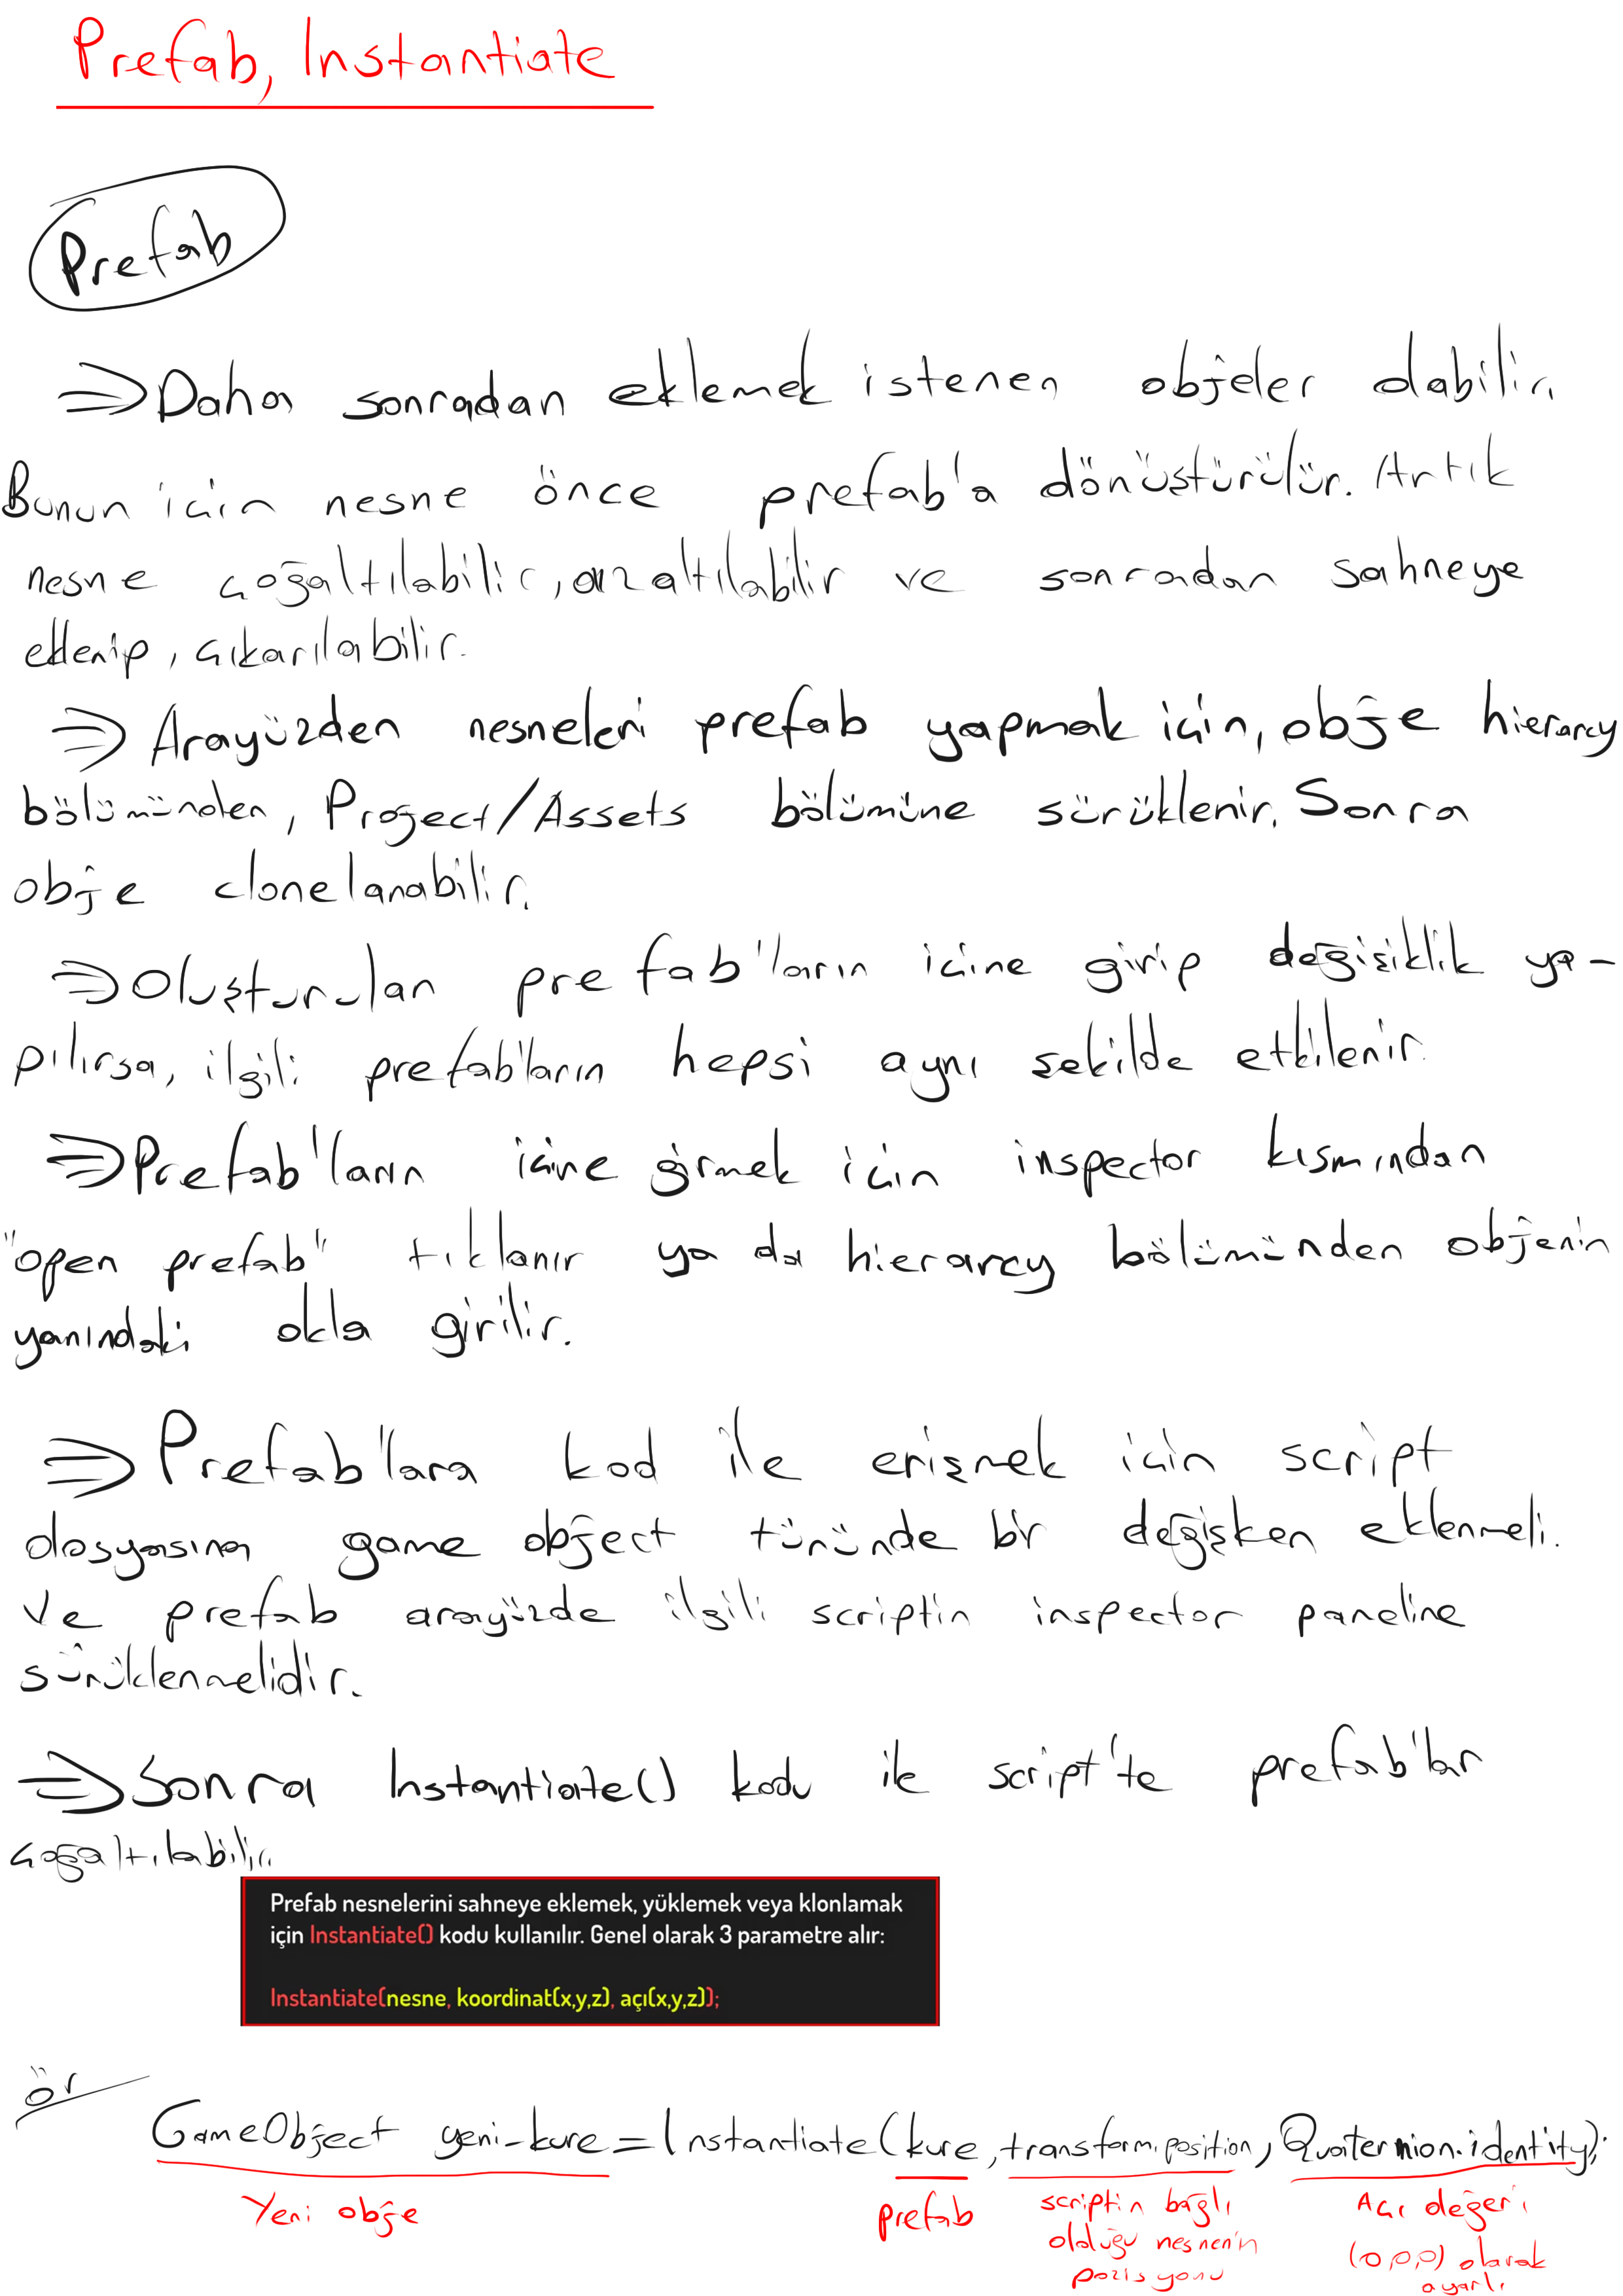 Prefab, Instantiate
Prefab
⇒ Daha sonradan eklemek istenen objeler olabilir.
Bunun için nesne önce prefab'a dönüştürülür. Artık
nesne çoğaltılabilir, azaltılabilir ve sonradan sahneye
eklenip, çıkarılabilir.
⇒ Arayüzden nesneleri prefab yapmak için, obje hierarcy
bölümünden, Project/Assets bölümüne sürüklenir. Sonra
obje clonelanabilir.
⇒ Oluşturulan prefab'ların içine girip değişiklik ya-
pılırsa, ilgili prefab'ların hepsi aynı şekilde etkilenir.
⇒ Prefab'ların içine girmek için inspector kısmından
"open prefab" tıklanır ya da hierarcy bölümünden objenin
yanındaki okla girilir.
⇒ Prefab'lara kod ile erişmek için script
dosyasına game object türünde bir değişken eklenmeli.
Ve prefab arayüzde ilgili scriptin inspector paneline
sürüklenmelidir.
⇒ Sonra Instantiate() kodu ile script'te prefab'lar
çoğaltılabilir.
Prefab nesnelerini sahneye eklemek, yüklemek veya klonlamak
için Instantiate() kodu kullanılır. Genel olarak 3 parametre alır:
Instantiate(nesne, koordinat(x,y,z), açı(x,y,z));
ör
GameObject yeni_kure = Instantiate(kure, transform.position, Quaternion.identity);
Yeni obje prefab scriptin bağlı Açı değeri
olduğu nesnenin (0,0,0) olarak
pozisyonu ayarlı